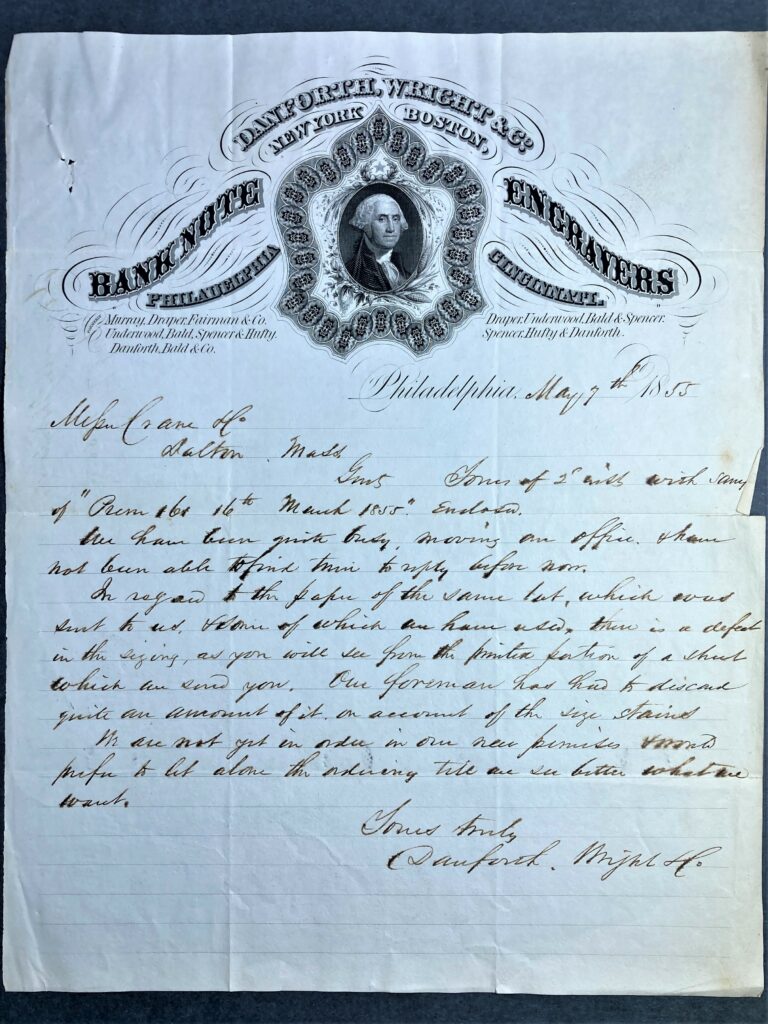 DANFORTH, WRIGHT & Co.
NEW YORK BOSTON,
BANK NOTE ENGRAVERS
PHILADELPHIA CINCINNATI.
Murray, Draper, Fairman & Co.
Underwood, Bald, Spencer & Hufty.
Danforth, Bald & Co.
Draper, Underwood, Bald & Spencer.
Spencer, Hufty & Danforth.
Philadelphia, May 7th 1855
Messrs Crane & Co
Dalton Mass
Gents Yours of 2d inst with
of " 16th March 1855" Enclosed.
We have been quite busy, moving our office, & have
not been able to find time to reply before now.
In regard to the paper of the same lot, which was
sent to us, & some of which we have used, there is a defect
in the sizing, as you will see from the printed portion of a sheet
which we send you. Our foreman has had to discard
quite an amount of it on account of the size stains
We are not yet in order in our new premises & would
prefer to let alone the ordering till we see better what we
want.
Yours truly
Danforth, Wright & Co